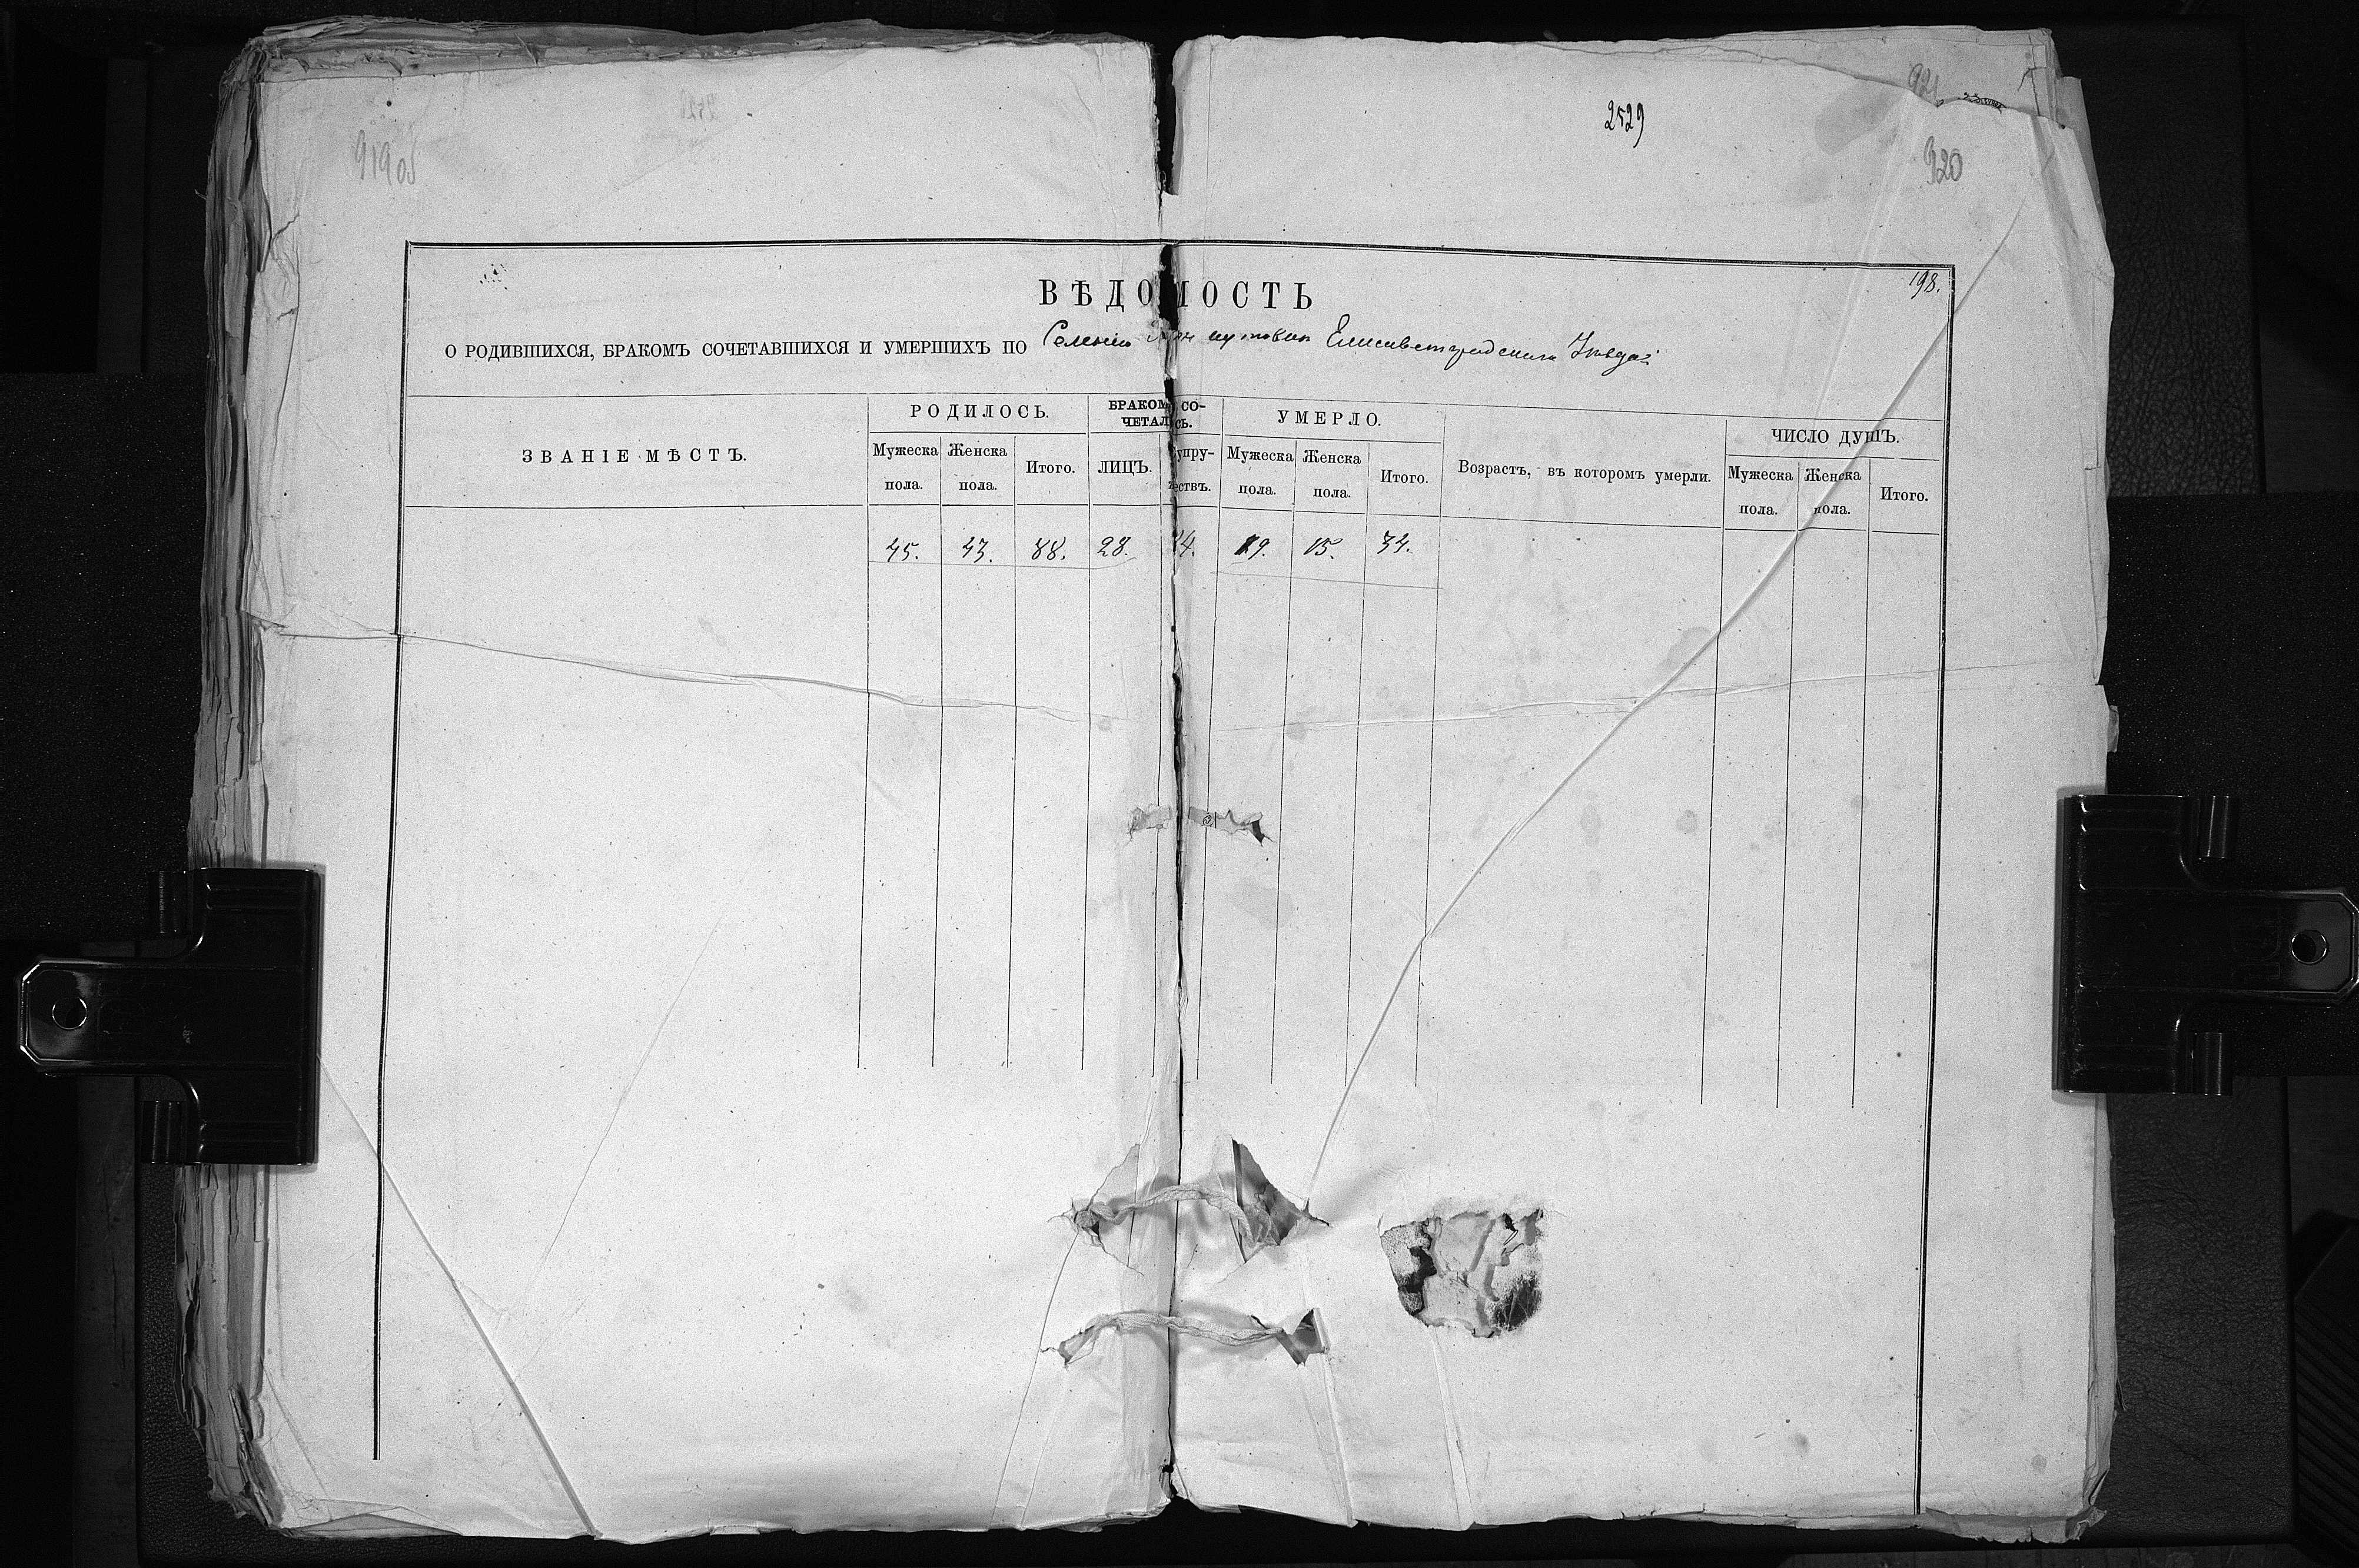 919 об
2529
921
920
198.
ВѢДОМОСТЬ
О РОДИВШИХСЯ, БРАКОМЪ СОЧЕТАВШИХСЯ И УМЕРШИХЪ ПО Селенію Елисаветградскаго Уѣзда
ЗВАНІЕ МѢСТЪ.
РОДИЛОСЬ.
Мужеска пола.
Женска пола.
Итого.
БРАКОМЪ СО-
ЧЕТАЛОСЬ.
ЛИЦЪ.
Супру-
жествъ.
УМЕРЛО.
Мужеска пола.
Женска пола.
Итого.
Возрастъ, въ которомъ умерли.
ЧИСЛО ДУШЪ.
Мужеска пола.
Женска пола.
Итого.
45. 43. 88. 28. 14. 19. 15. 34.